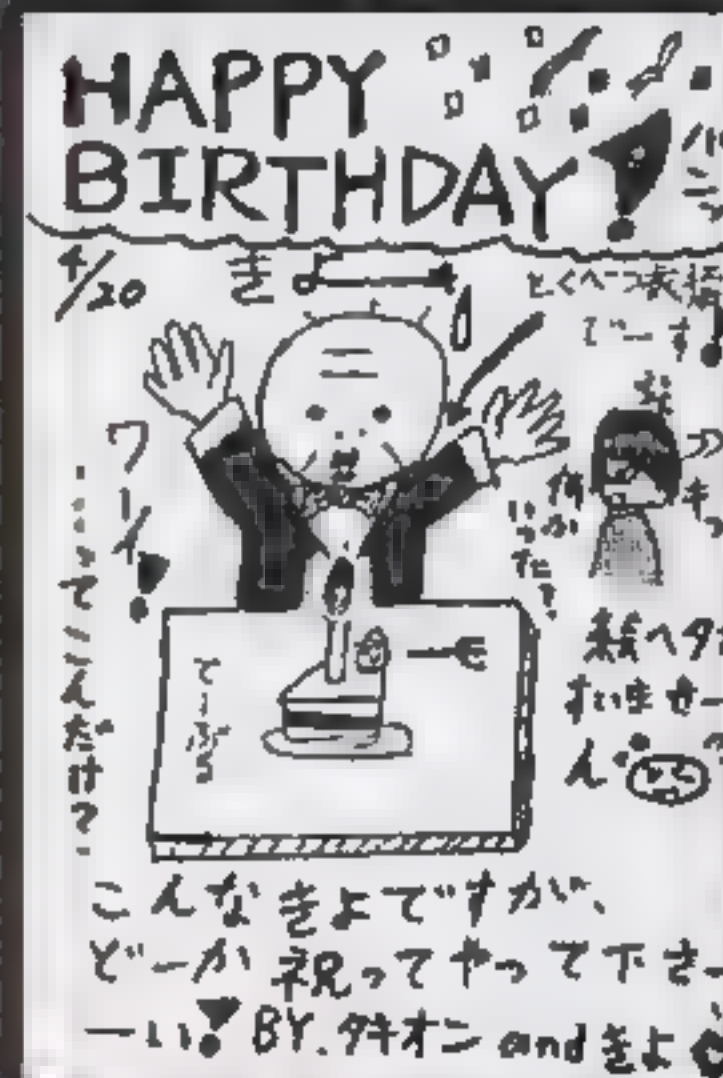 HAPPY
BIRTHDAY!
4/20
きよ
とくべつ衣装
でーす!
ワーイ!
...ってこんだけ?
いった?
てーぶる
絵ヘタ
すいませー
ん
こんなきよですが、
どーか祝ってやって下さー
ーい! BY.タキオン and きよ